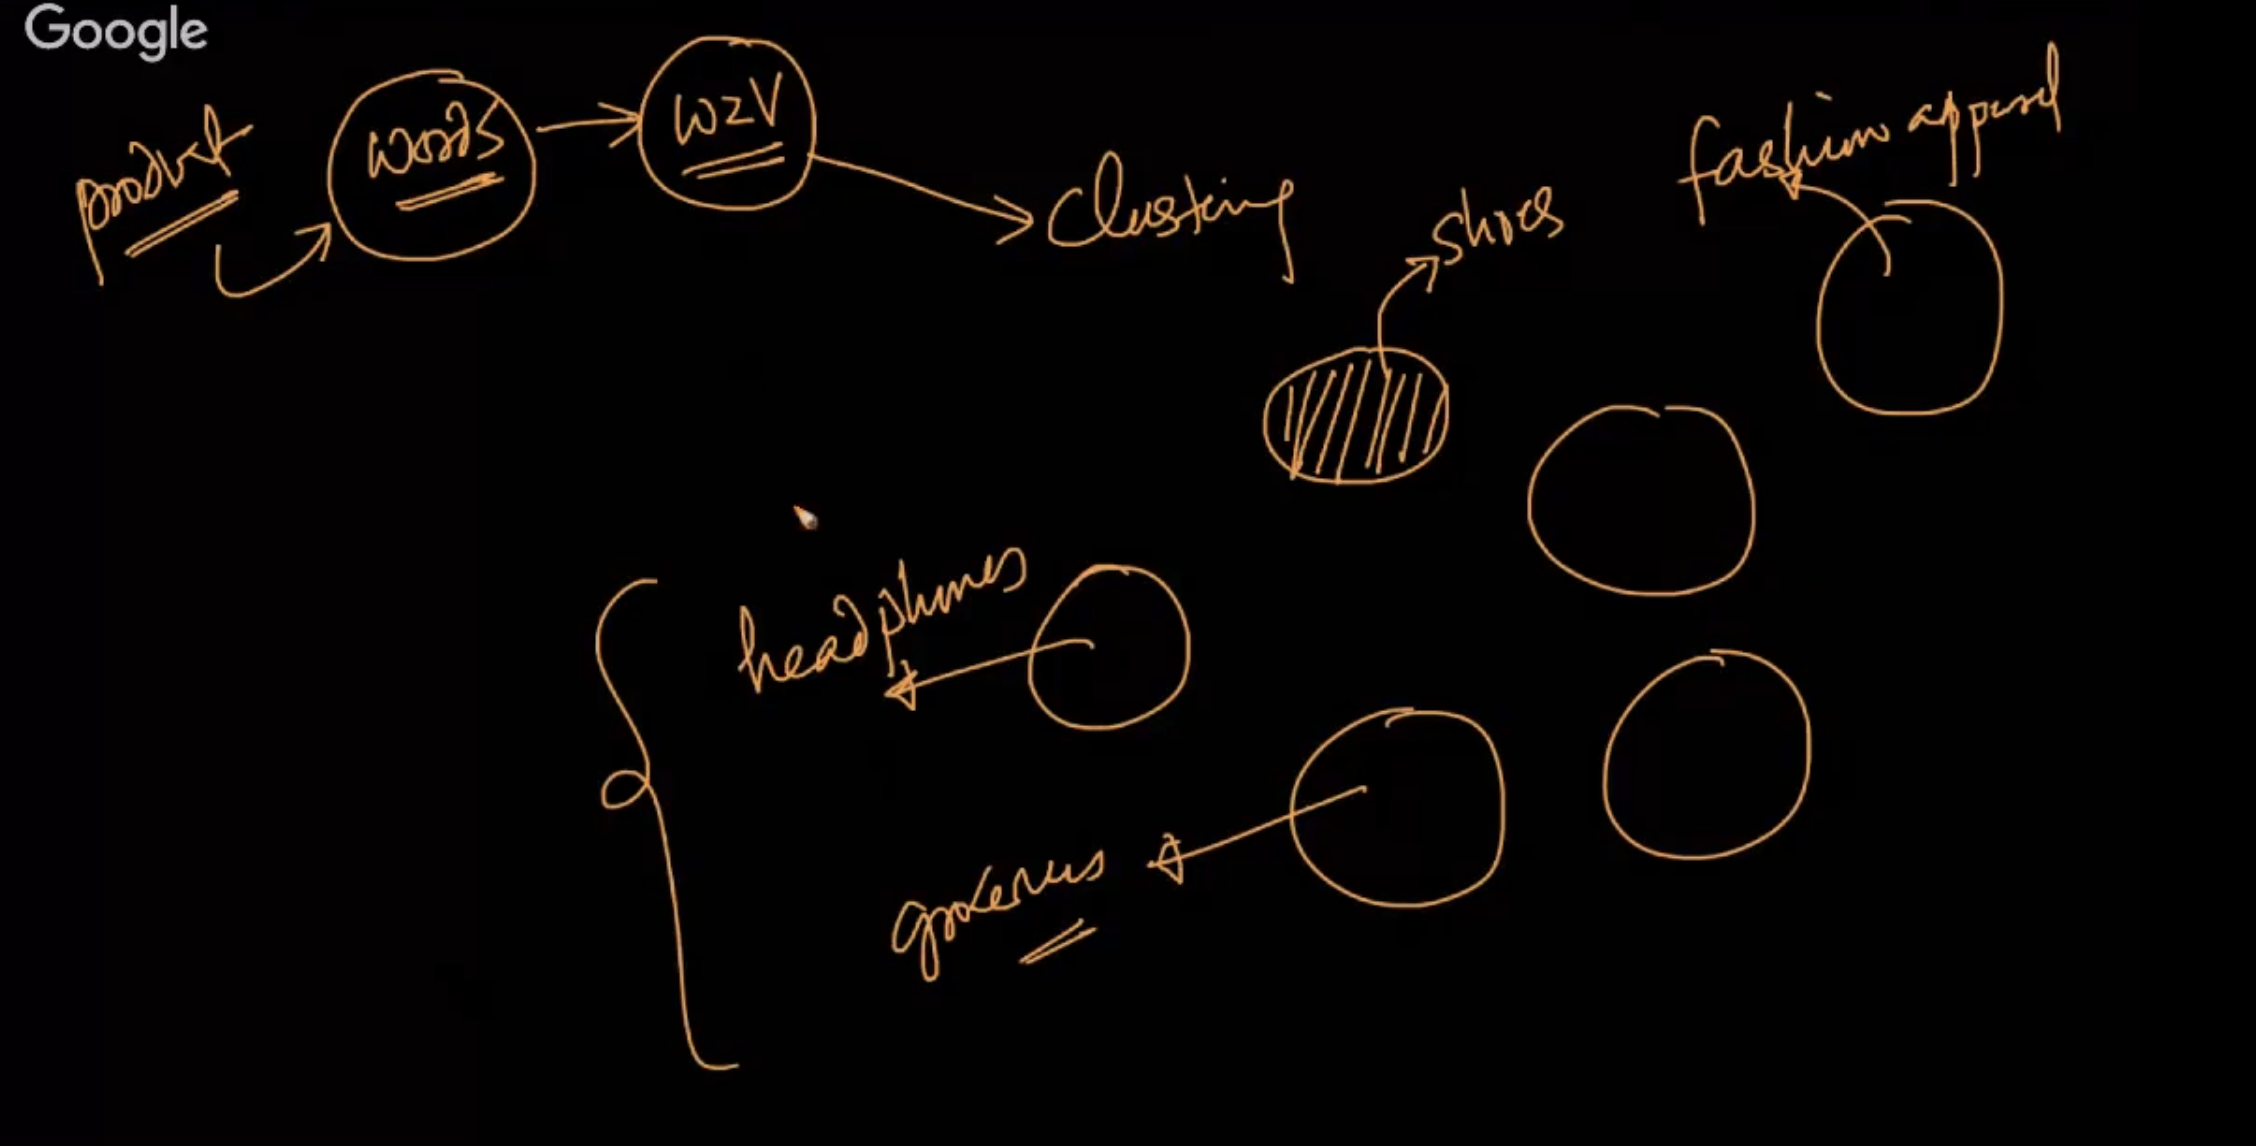 Google
product
words
w2V
Clusting
shoes
fashion apparel
headphones
groceries